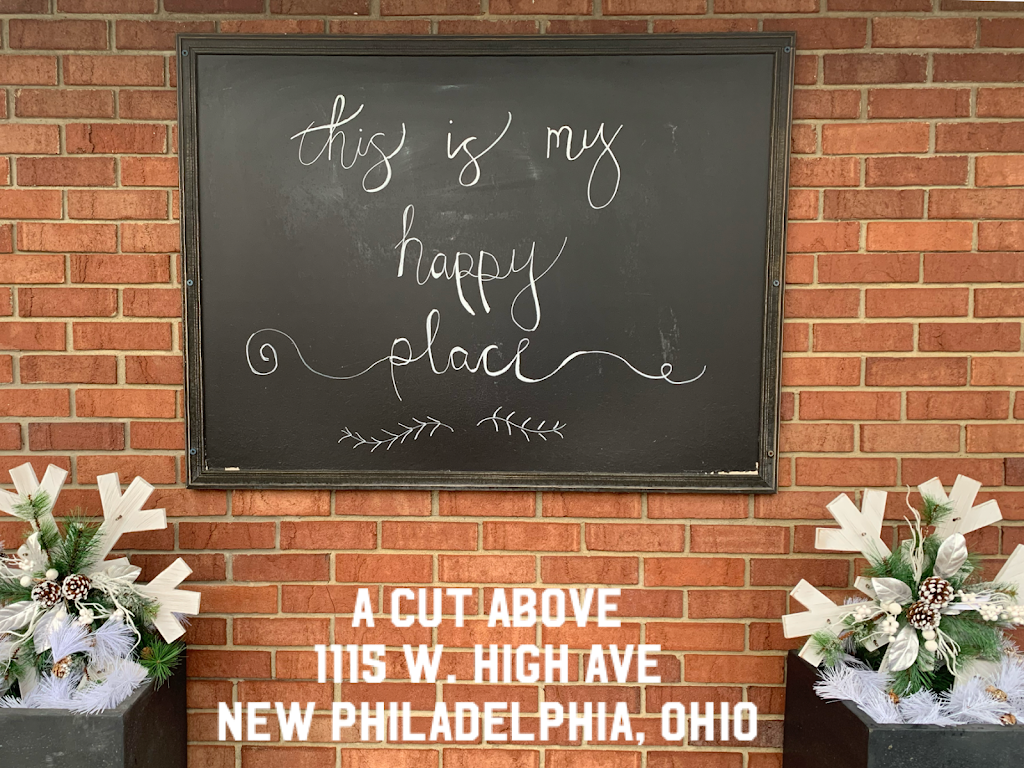 this is my
happy
place
A CUT ABOVE
1115 W. HIGH AVE
NEW PHILADELPHIA, OHIO